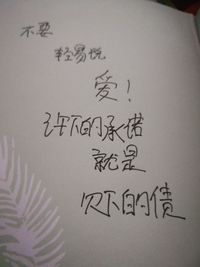 不要
轻易说
爱！
许下的承诺
就是
欠下的债